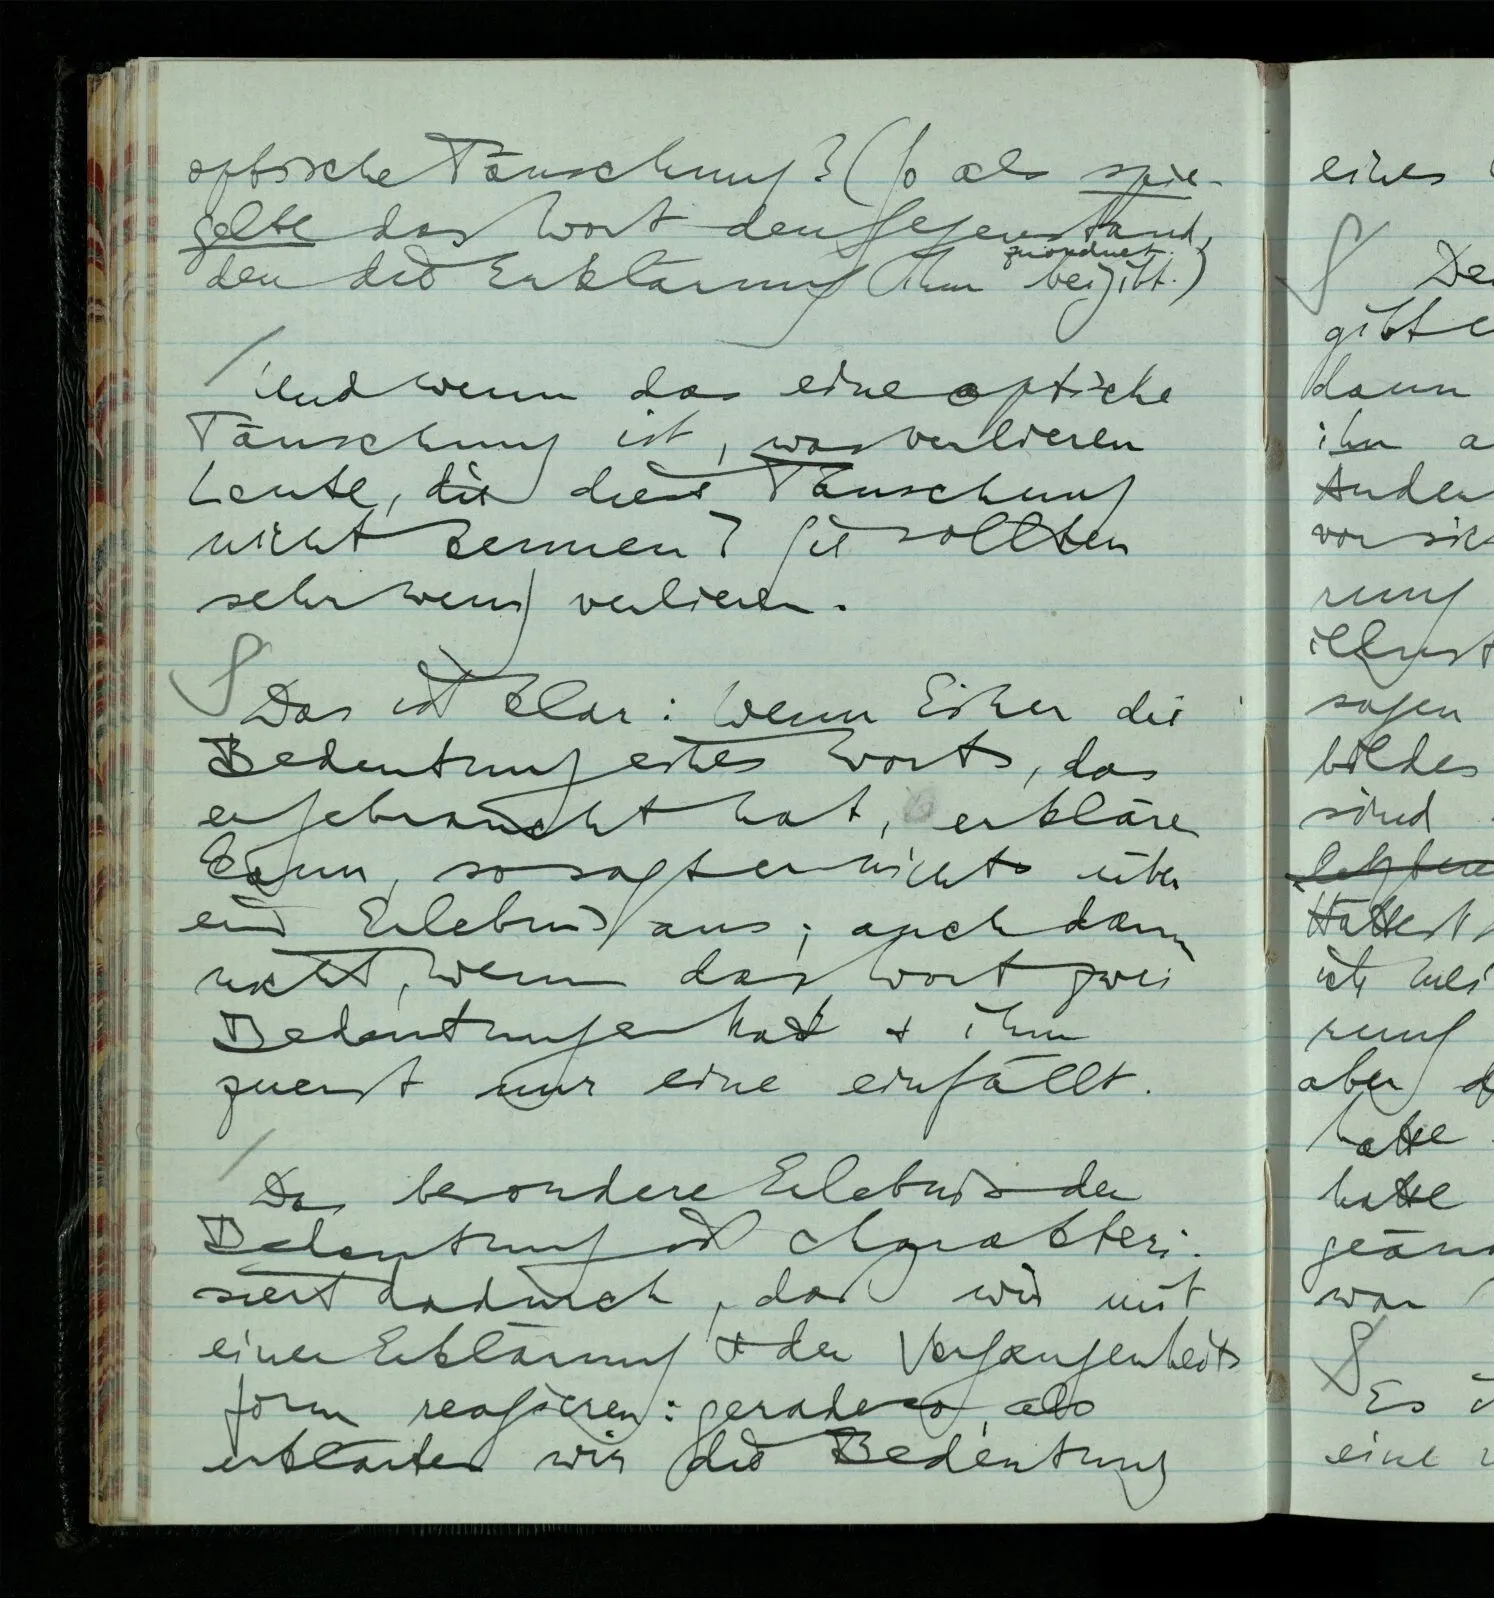 optische Täuschung? (So als spie-
gelte das Wort den Gegenstand,
zuordnet.
den die Erklärung ihm beigibt.)
/
Und wenn das eine optische
Täuschung ist, was verlieren
Leute, die diese Täuschung
nicht kennen? Sie sollten
sehr wenig verlieren.
Das ist klar: Wenn Einer die
Bedeutung eines Worts, das
er gebraucht hat, erklären
kann, so sagt er nichts über
ein Erlebnis aus; auch dann
nicht, wenn das Wort zwei
Bedeutungen hat & ihm
zuerst nur eine einfällt.
/
Das besondere Erlebnis der
Bedeutung ist charakteri-
siert dadurch, daß wir mit
einer Erklärung & der Vergangenheits
form reagieren: gerade so, als
erklärten wir die Bedeutung
eines
De
gibt e
dann
ihn a
Ander
vor sich
rung
illust
sagen
bildes
sind
Hättest
ich mei
rung
aber d
hatte
hatte
geänd
war
Es i
eine